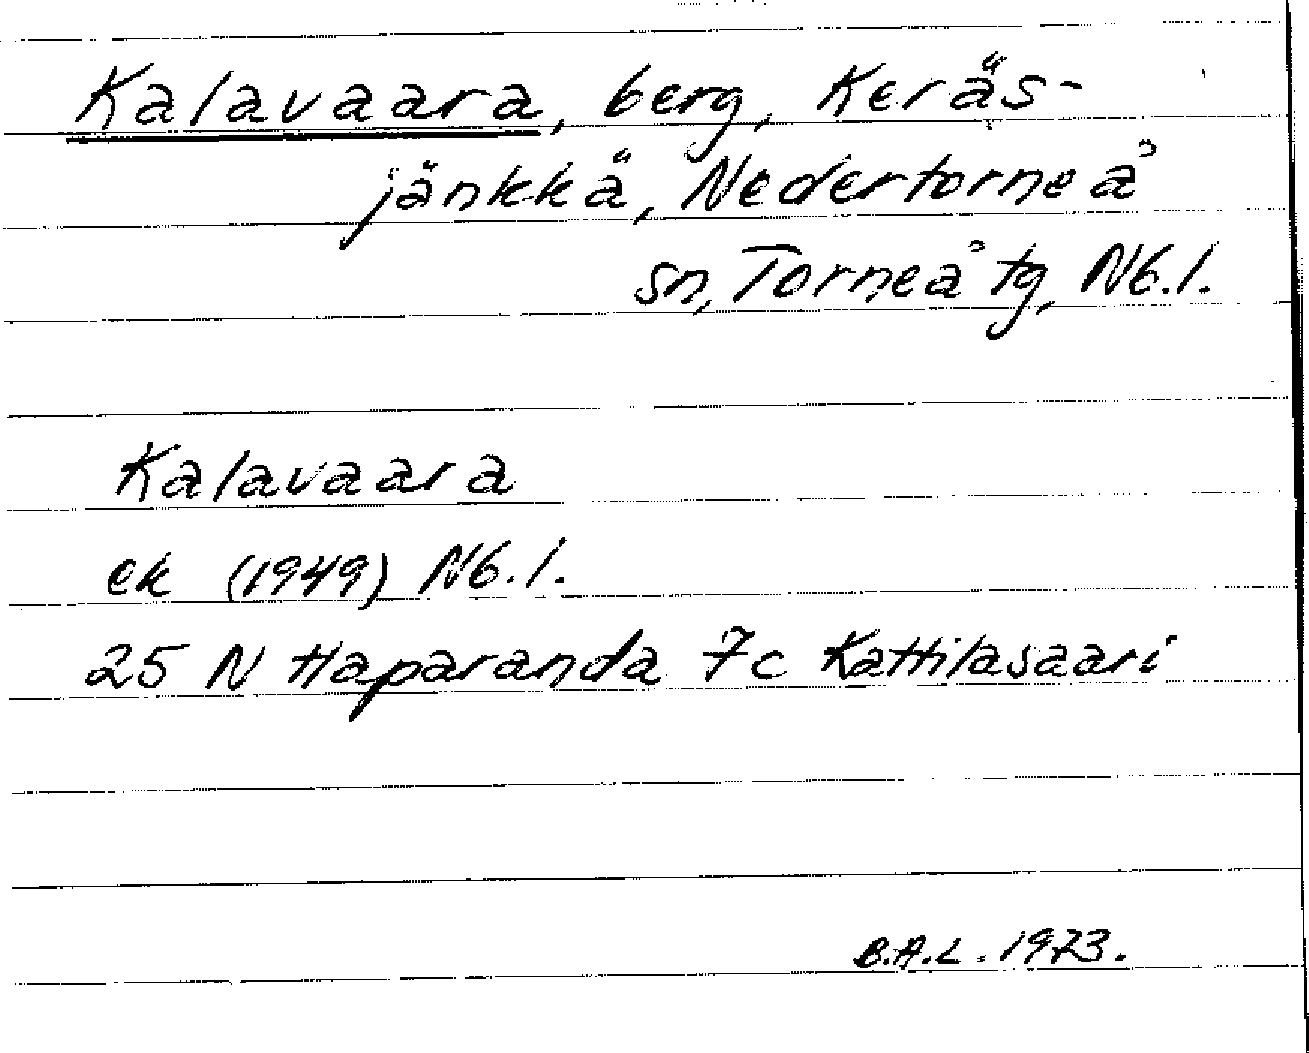 Kalavaara, berg, Keräs-
jänkkä, Nedertorneå
sn, Torneå tg, Nb.l.
Kalavaara
ek (1949) Nb.l.
25 N Haparanda 7c Kattilasaari
B.A.L. 1973.